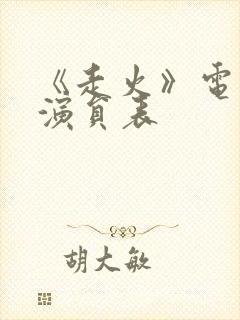 《走火》電
演貟表
胡大敏